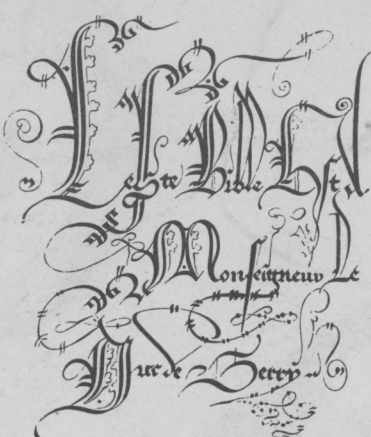 Ceste Bible Est A
Monseigneur Le
Duc de Berry